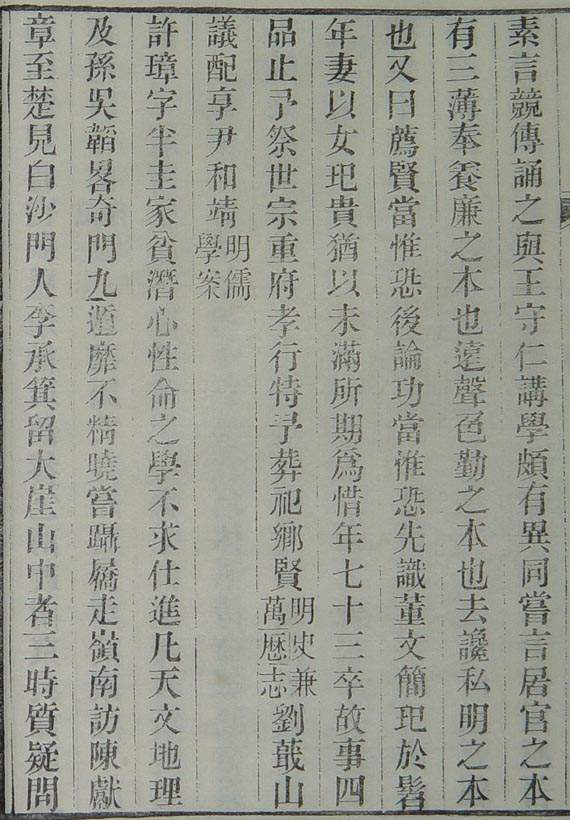 素言競傳誦之與王守仁講學頗有異同嘗言居官之本
有三薄奉養廉之本也遠聲色勤之本也去讒私明之本
也又曰薦賢當惟恐後論功當惟恐先識董文簡玘於髫
年妻以女玘貴猶以未滿所期爲惜年七十三卒故事四
品止予祭世宗重府孝行特予葬祀鄉賢明史兼萬厯志劉蕺山
議配享尹和靖明儒學案
許璋字半圭家貧潛心性命之學不求仕進凡天文地理
及孫吳韜畧奇門九遁靡不精曉嘗躡屩走嶺南訪陳獻
章至楚見白沙門人李承箕留大崖山中者三時質疑問